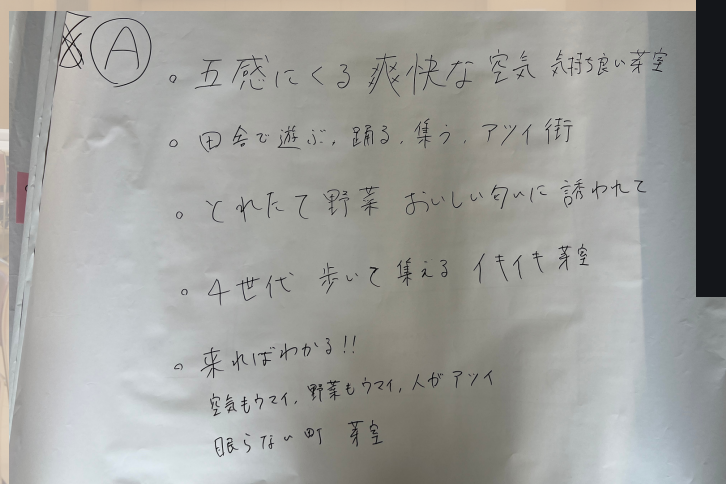 A
。五感にくる爽快な空気 気持ち良い芽室
。田舎で遊ぶ、踊る、集う、アツイ街
。とれたて野菜 おいしい匂いに誘われて
。4世代 歩いて集える イキイキ芽室
。来ればわかる!!
空気もウマイ、野菜もウマイ、人がアツイ
眠らない町 芽室